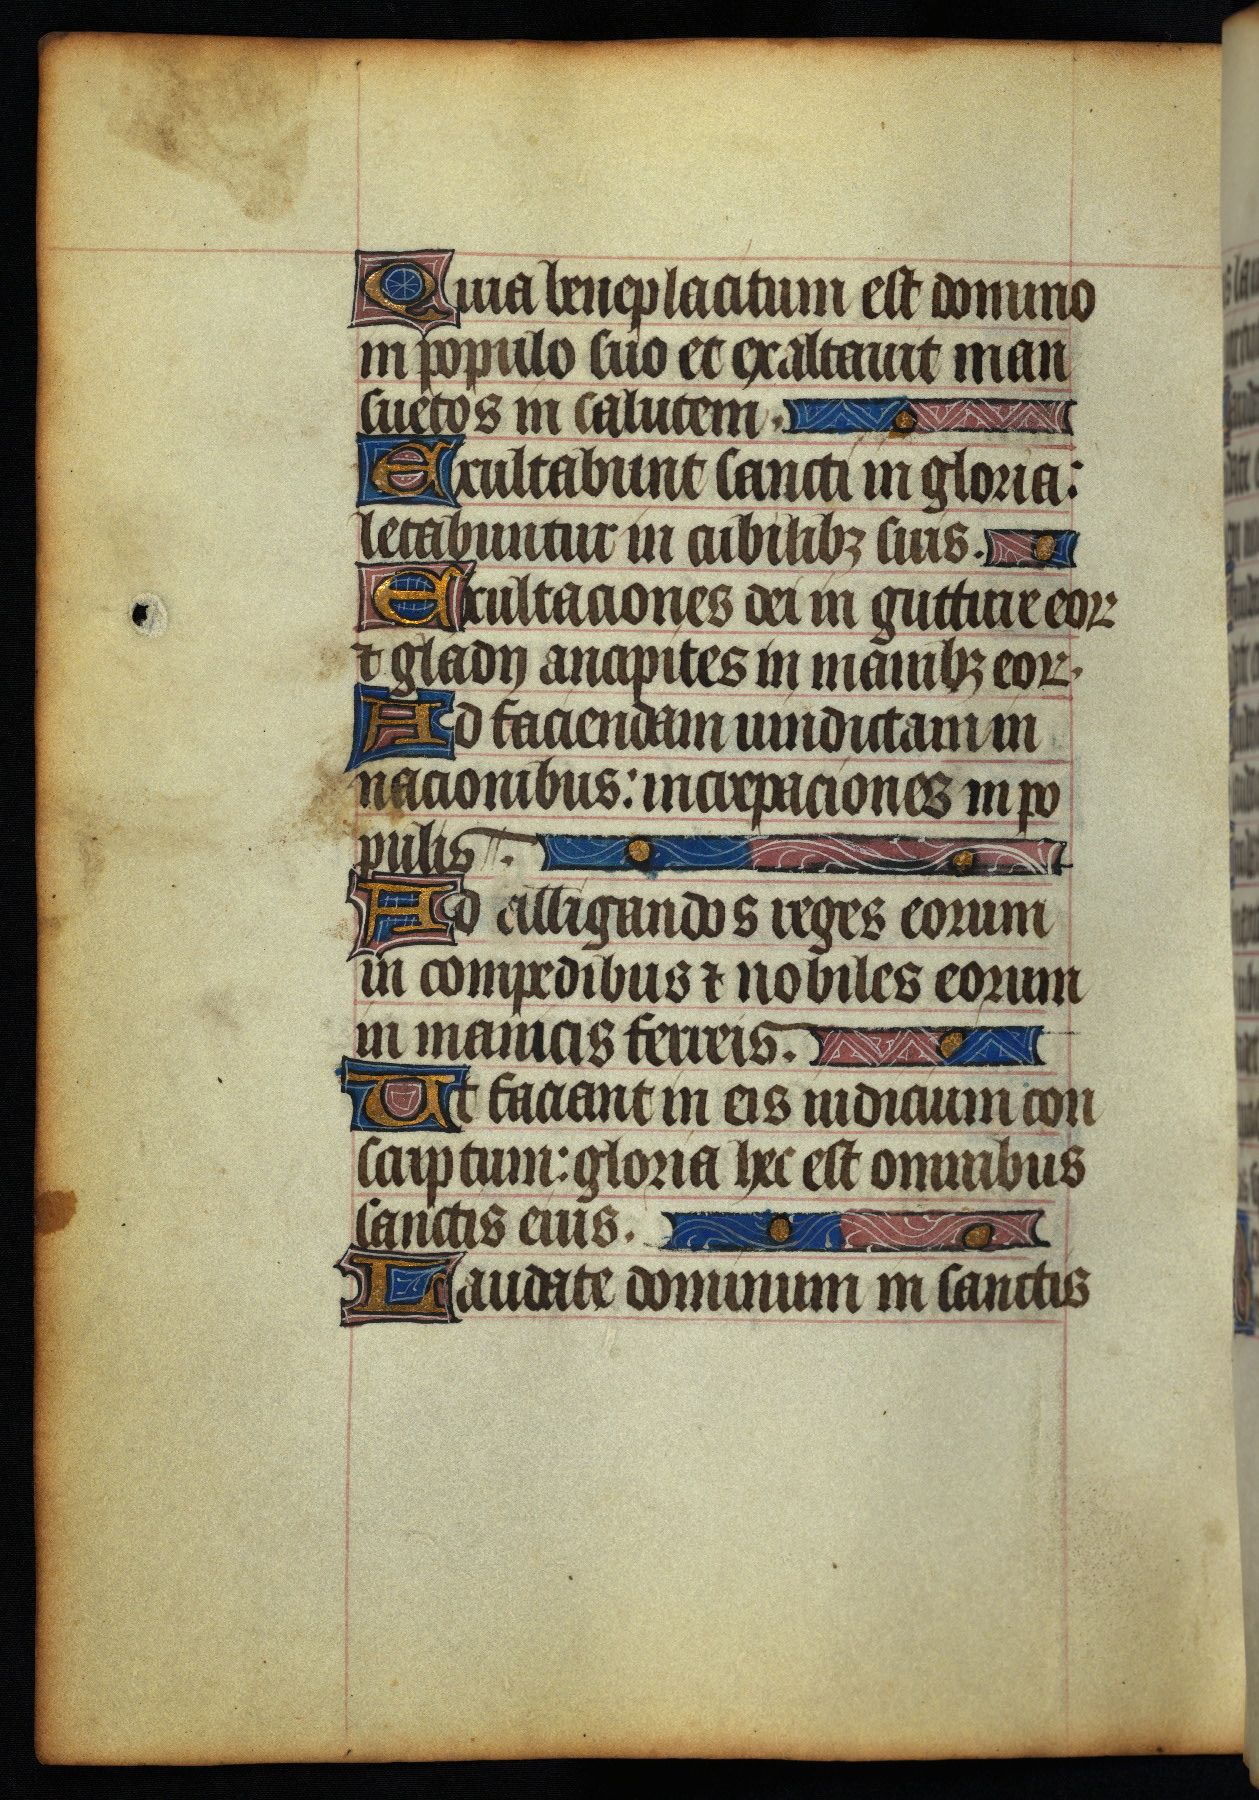 Quia beneplacitum est domino
in populo suo et exaltauit man
suetos in salutem.
Exultabunt sancti in gloria:
letabuntur in cubilibꝫ suis.
Exultaciones dei in gutture eoꝝ
⁊ gladij ancipites in manibꝫ eoꝝ.
Ad faciendam uindictam in
nacionibus: increpaciones in po
pulis.
Ad alligandos reges eorum
in compedibus ⁊ nobiles eorum
in manicis ferreis.
Ut faciant in eis iudicium con
scriptum: gloria hec est omnibus
sanctis eius.
Laudate dominum in sanctis